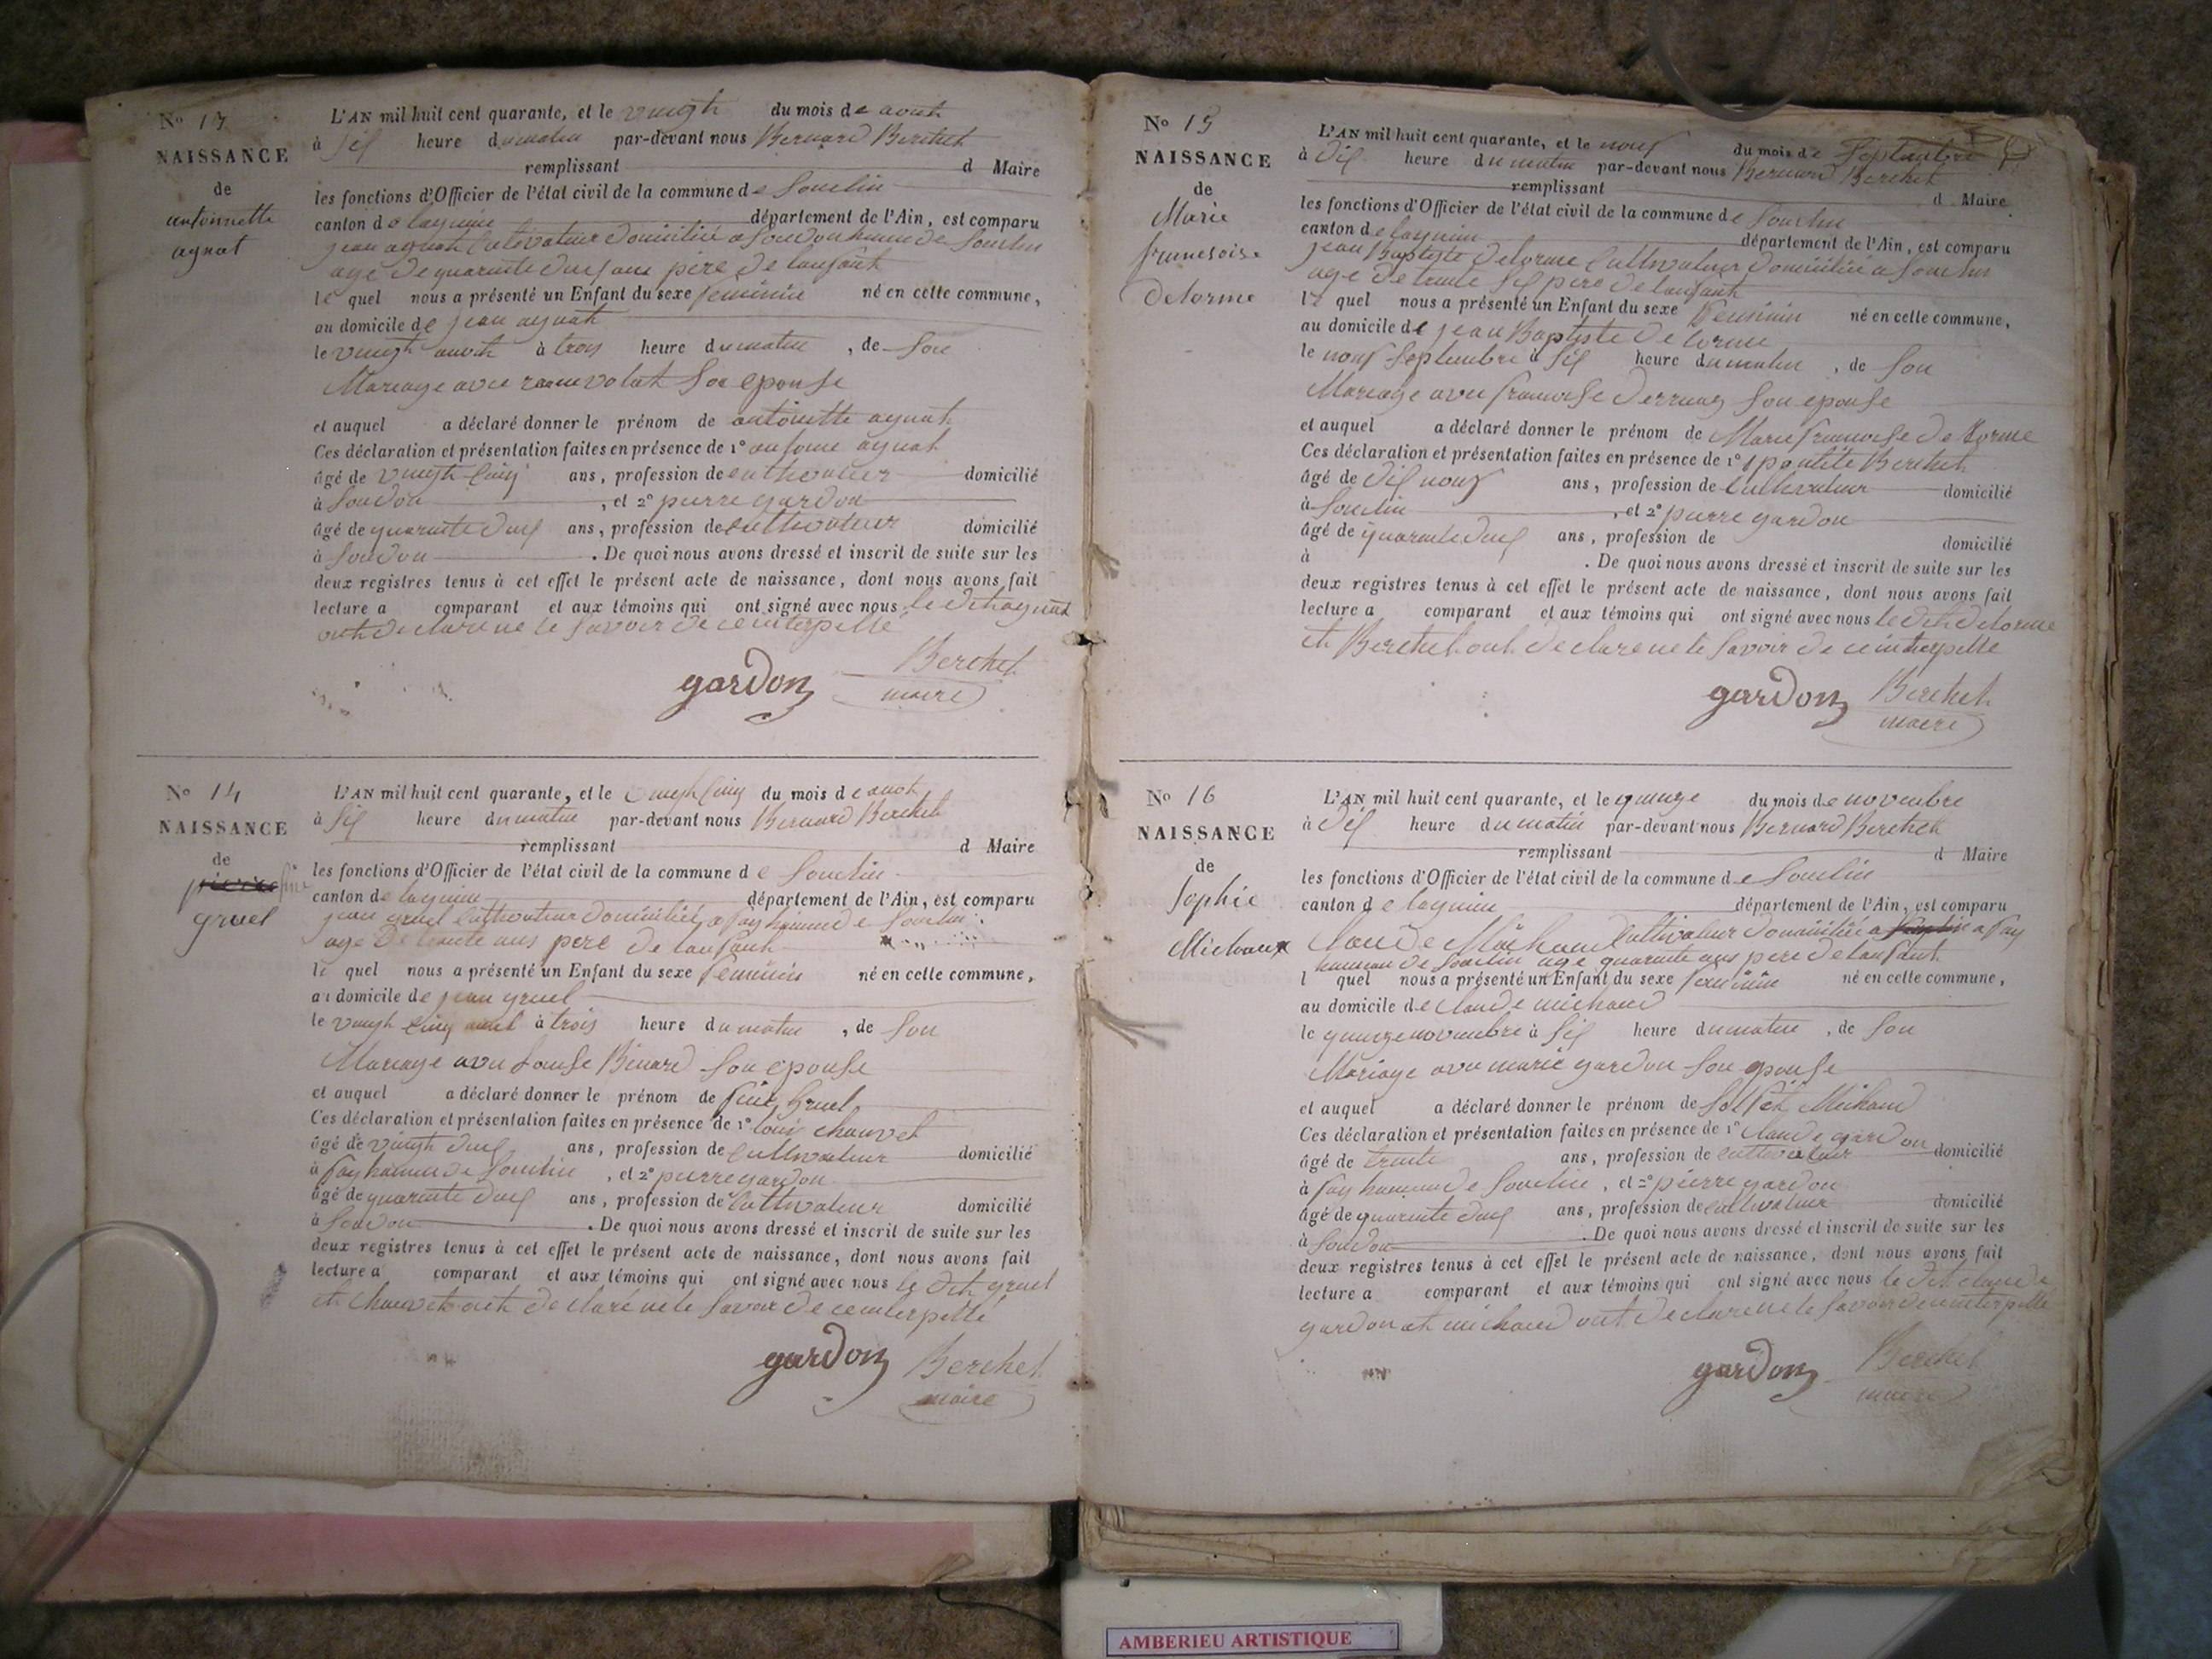 No 13
NAISSANCE
de
antoinette
agnat
L'AN mil huit cent quarante, et le vingt du mois de aout
à six heure du matin par-devant nous Bernard Berchet
remplissant d Maire
les fonctions d'Officier de l'état civil de la commune de Souclin
canton de lagnieu département de l'Ain, est comparu
jean agnat Cultivateur domicilié a Soudon hameau de Souclin
age de quarante deux ans père de lanfant
le quel nous a présenté un Enfant du sexe feminin né en cette commune,
au domicile de jean agnat
le vingt aout à trois heure du matin, de Son
Mariage avec volat Son epouse
et auquel a déclaré donner le prénom de antoinette agnat
Ces déclaration et présentation faites en présence de 1° antoine agnat
âgé de vingt cinq ans, profession de cultivateur domicilié
à Soudon, et 2° pierre gardon
âgé de quarante deux ans, profession de cultivateur domicilié
à Soudon. De quoi nous avons dressé et inscrit de suite sur les
deux registres tenus à cet effet le présent acte de naissance, dont nous avons fait
lecture a comparant et aux témoins qui ont signé avec nous le dit agnat
ont declaré ne le Savoir de ce interpellé
gardon Berchet
maire
No 14
NAISSANCE
de
fine
gruel
L'AN mil huit cent quarante, et le vingt cinq du mois de aout
à six heure du matin par-devant nous Bernard Berchet
remplissant d Maire
les fonctions d'Officier de l'état civil de la commune de Souclin
canton de lagnieu département de l'Ain, est comparu
jean gruel Cultivateur domicilié a fay hameau de Souclin
age de trente ans père de lanfant
le quel nous a présenté un Enfant du sexe feminin né en cette commune,
au domicile de jean gruel
le vingt cinq aout à trois heure du matin, de Son
Mariage avec Louise Binard Son epouse
et auquel a déclaré donner le prénom de fine Gruel
Ces déclaration et présentation faites en présence de 1° louis chauvet
âgé de vingt deux ans, profession de Cultivateur domicilié
à fay hameau de Souclin, et 2° pierre gardon
âgé de quarante deux ans, profession de Cultivateur domicilié
à Soudon. De quoi nous avons dressé et inscrit de suite sur les
deux registres tenus à cet effet le présent acte de naissance, dont nous avons fait
lecture a comparant et aux témoins qui ont signé avec nous le dit gruel
et chauvet ont declaré ne le Savoir de ce interpellé
gardon Berchet
maire
No 15
NAISSANCE
de
Marie
francoise
Delorme
L'AN mil huit cent quarante, et le nouf du mois de Septembre
à dix heure du matin par-devant nous Bernard Berchet
remplissant d Maire
les fonctions d'Officier de l'état civil de la commune de Souclin
canton de lagnieu département de l'Ain, est comparu
jean Baptiste Delorme Cultivateur domicilié a Souclin
age de trante six pere de lanfant
le quel nous a présenté un Enfant du sexe feminin né en cette commune,
au domicile de jean Baptiste Delorme
le nouf Septembre à six heure du matin, de Son
Mariage avec francoise Son epouse
et auquel a déclaré donner le prénom de Marie francoise Delorme
Ces déclaration et présentation faites en présence de 1° Berchet
âgé de dix nouf ans, profession de Cultivateur domicilié
à Souclin, et 2° pierre gardon
âgé de quarante deux ans, profession de domicilié
à. De quoi nous avons dressé et inscrit de suite sur les
deux registres tenus à cet effet le présent acte de naissance, dont nous avons fait
lecture a comparant et aux témoins qui ont signé avec nous le dit delorme
et Berchet ont declare ne le Savoir de ce interpellé
gardon Berchet
maire
No 16
NAISSANCE
de
Sophie
Michaux
L'AN mil huit cent quarante, et le quinze du mois de novembre
à dix heure du matin par-devant nous Bernard Berchet
remplissant d Maire
les fonctions d'Officier de l'état civil de la commune de Souclin
canton de lagnieu département de l'Ain, est comparu
Claude Michaud Cultivateur domicilié a Souclin a fay
hameau de Souclin age quarante ans pere de lanfant
l quel nous a présenté un Enfant du sexe feminin né en cette commune,
au domicile de claude michaud
le quinze novembre à six heure du matin, de Son
Mariage avec marie gardon Son epouse
et auquel a déclaré donner le prénom de Michaud
Ces déclaration et présentation faites en présence de 1° claude gardon
âgé de trente ans, profession de cultivateur domicilié
à fay hameau de Souclin, et 2° pierre gardon
âgé de quarante deux ans, profession de cultivateur domicilié
à Soudon. De quoi nous avons dressé et inscrit de suite sur les
deux registres tenus à cet effet le présent acte de naissance, dont nous avons fait
lecture a comparant et aux témoins qui ont signé avec nous le dit claude
gardon et michaud ont declare ne le Savoir de ce interpellé
gardon Berchet
maire
AMBERIEU ARTISTIQUE